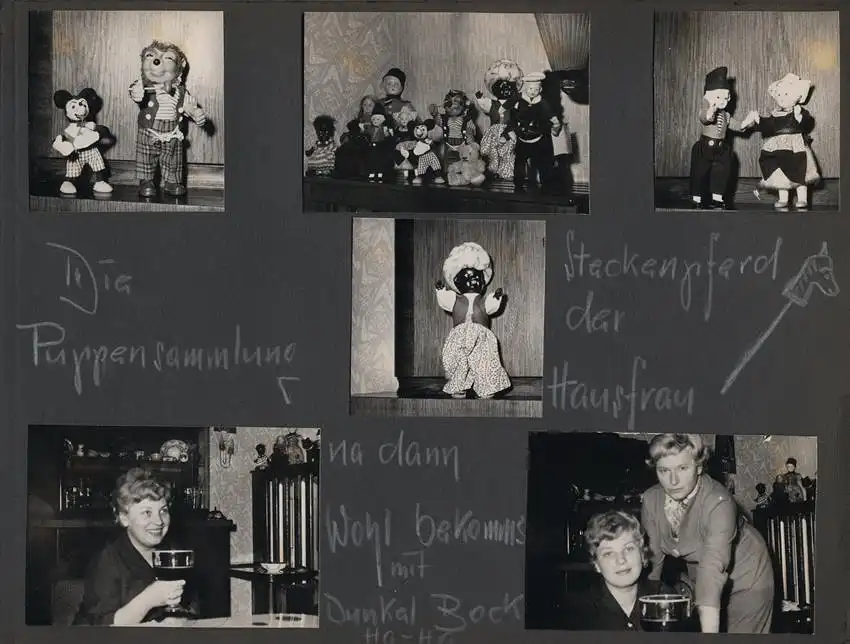 Die
Puppensammlung
Steckenpferd
der
Hausfrau
na dann
Wohl bekomms
mit
Dunkel Bock
Ha-Ha